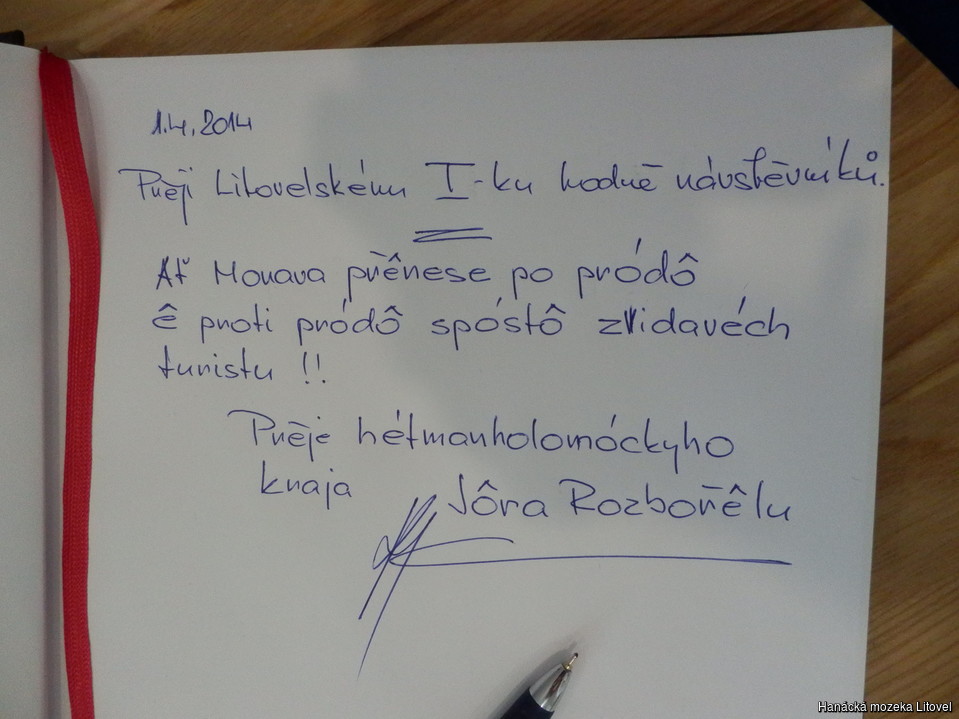 1.4.2014
Přeji Litovelskému I-ku hodně návštěvníků.
Ať Morava přênese po pródô
ê proti pródô spóstô zvidavéch
turistu !!
Přeje hétmanholomóckyho
kraja
Jôra Rozbořêlu
Hanácká mozeka Litovel